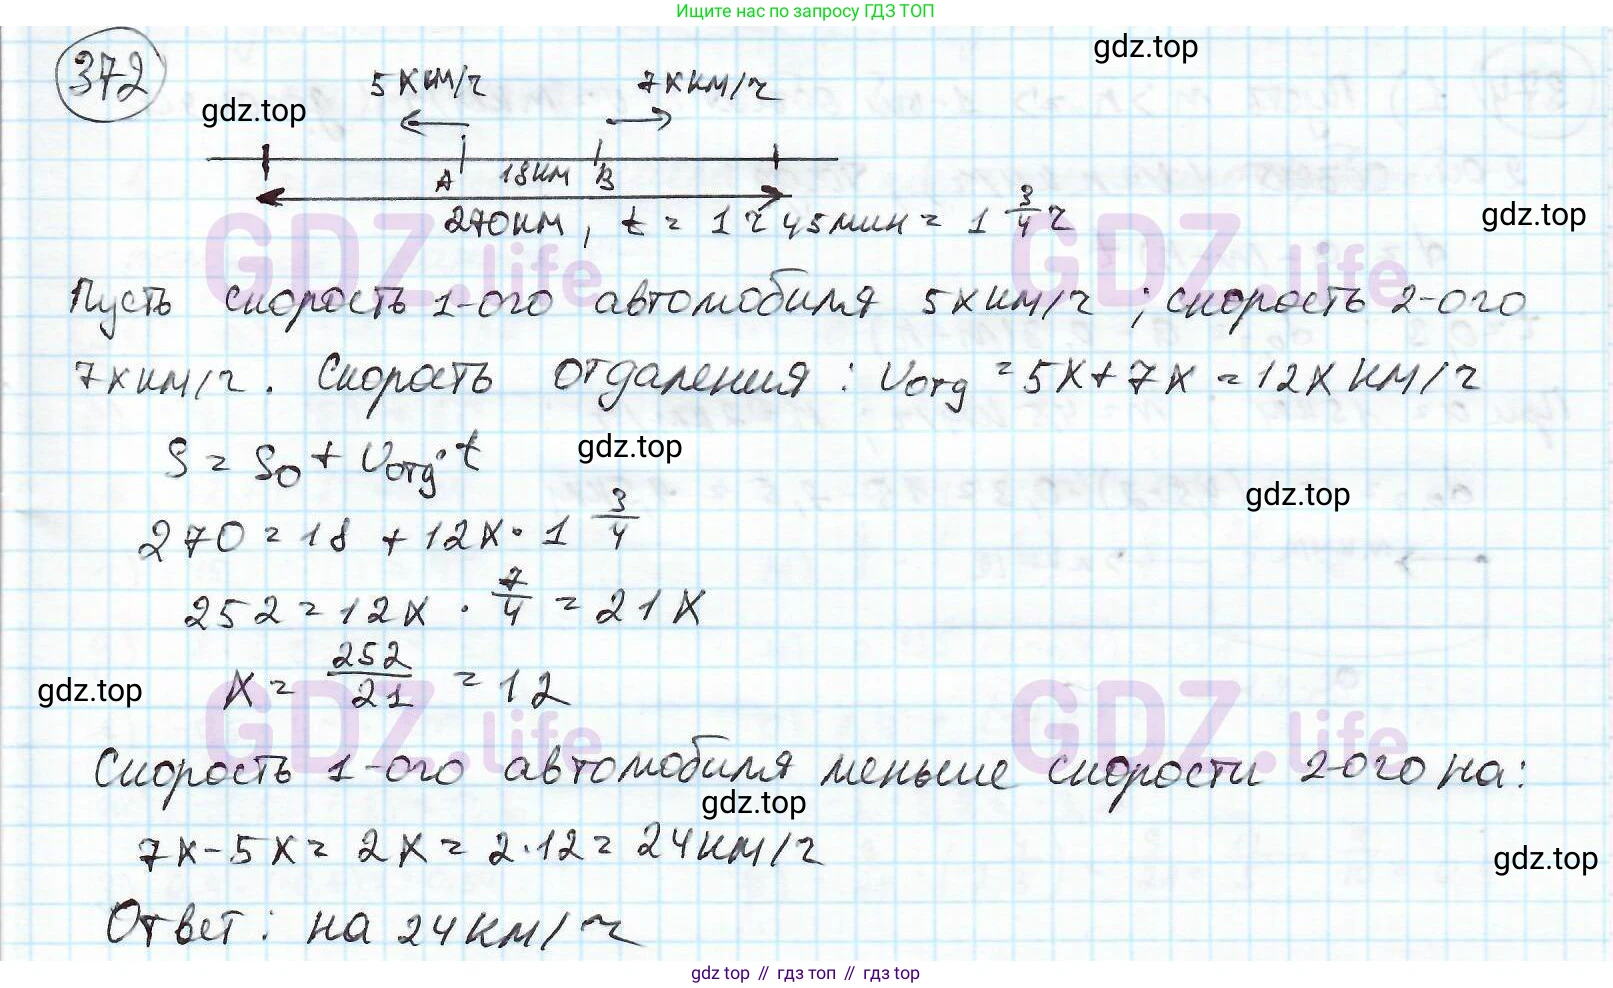 Ищите нас по запросу ГДЗ ТОП
372
5x км/ч 7x км/ч
gdz.top
gdz.top
A 18км B
270км, t = 1 ч 45 мин = 1 3/4 ч
gdz.top
GDZ.life GDZ.life
Пусть скорость 1-ого автомобиля 5x км/ч ; скорость 2-ого
7x км/ч. Скорость отдаления : υотд = 5x + 7x = 12x км/ч
S = S0 + υотд · t
gdz.top
gdz.top
270 = 18 + 12x · 1 3/4
252 = 12x · 7/4 = 21x
x = 252/21 = 12
gdz.top
GDZ.life GDZ.life
Скорость 1-ого автомобиля меньше скорости 2-ого на:
gdz.top
7x - 5x = 2x = 2 · 12 = 24 км/ч
gdz.top
Ответ : на 24 км/ч
gdz.top // гдз топ // гдз top